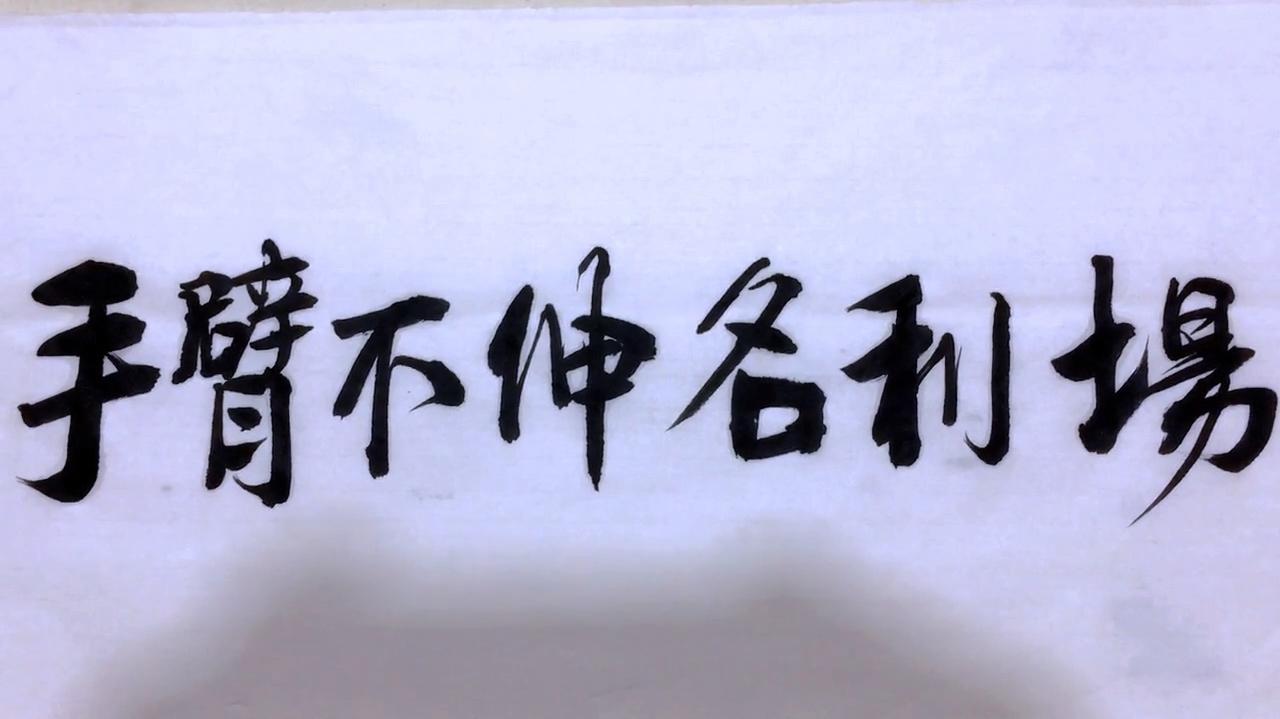 手臂不伸名利場